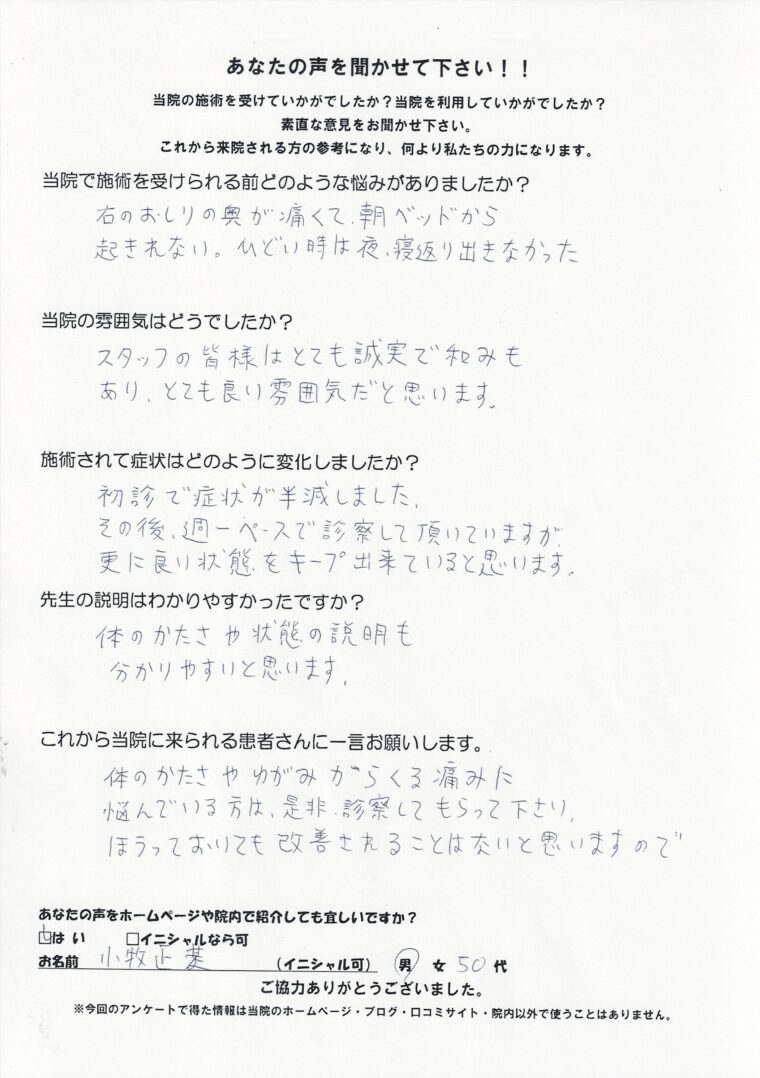 あなたの声を聞かせて下さい！！
当院の施術を受けていかがでしたか？当院を利用していかがでしたか？
素直な意見をお聞かせ下さい。
これから来院される方の参考になり、何より私たちの力になります。
当院で施術を受けられる前どのような悩みがありましたか？
右のおしりの奥が痛くて、朝ベッドから
起きれない。ひどい時は夜、寝返り出きなかった
当院の雰囲気はどうでしたか？
スタッフの皆様はとても誠実で和みも
あり、とても良い雰囲気だと思います。
施術されて症状はどのように変化しましたか？
初診で症状が半減しました、
その後、週一ペースで診察して頂いていますが、
更に良い状態をキープ出来ていると思います。
先生の説明はわかりやすかったですか？
体のかたさや状態の説明も
分かりやすいと思います。
これから当院に来られる患者さんに一言お願いします。
体のかたさやゆがみからくる痛みに
悩んでいる方は、是非、診察してもらって下さい、
ほうっておいても改善されることはないと思いますので
あなたの声をホームページや院内で紹介しても宜しいですか？
□はい □イニシャルなら可
お名前 小牧正 （イニシャル可） 男 女 50代
ご協力ありがとうございました。
※今回のアンケートで得た情報は当院のホームページ・ブログ・口コミサイト・院内以外で使うことはありません。